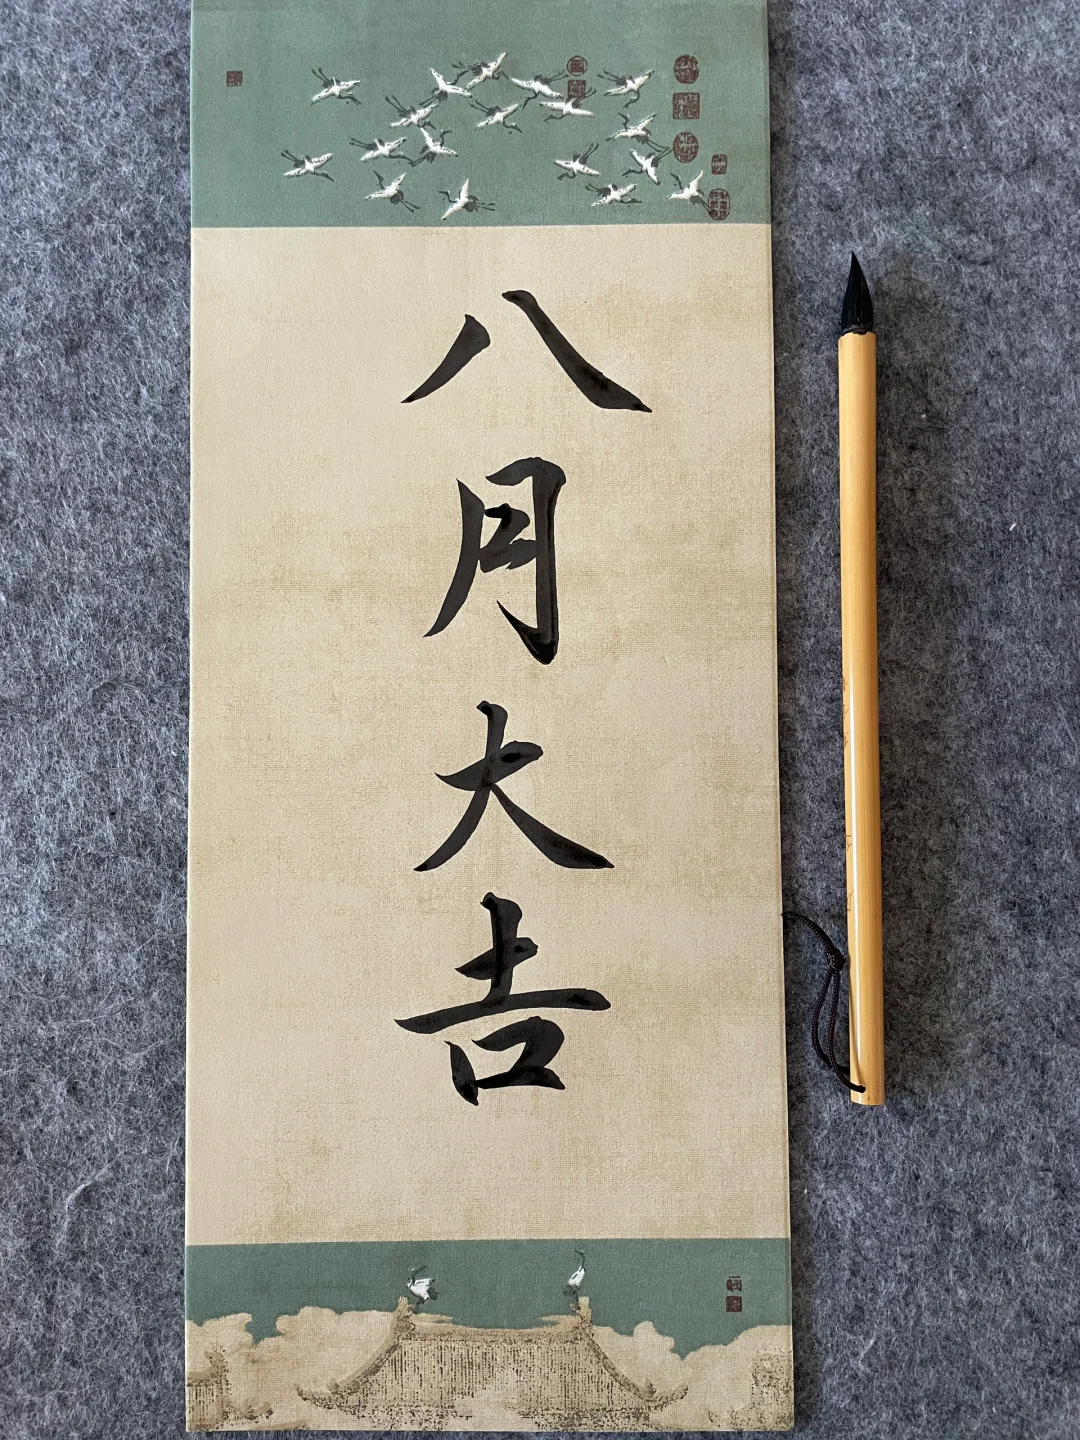 八月大吉